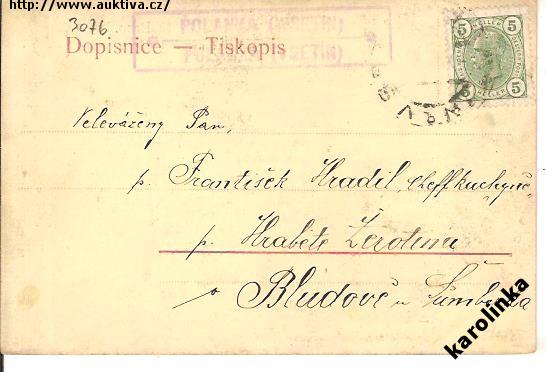 http://www.auktiva.cz/
3076.
POLANKA (VSETIN)
Dopisnice — Tiskopis
5 HELLER 5
5 HELLER 5
Velevážený Pan,
p. František Hradil, cheffkuchyně
p. Hraběte Žerotína
v Bludově u Šumberka
karolinka